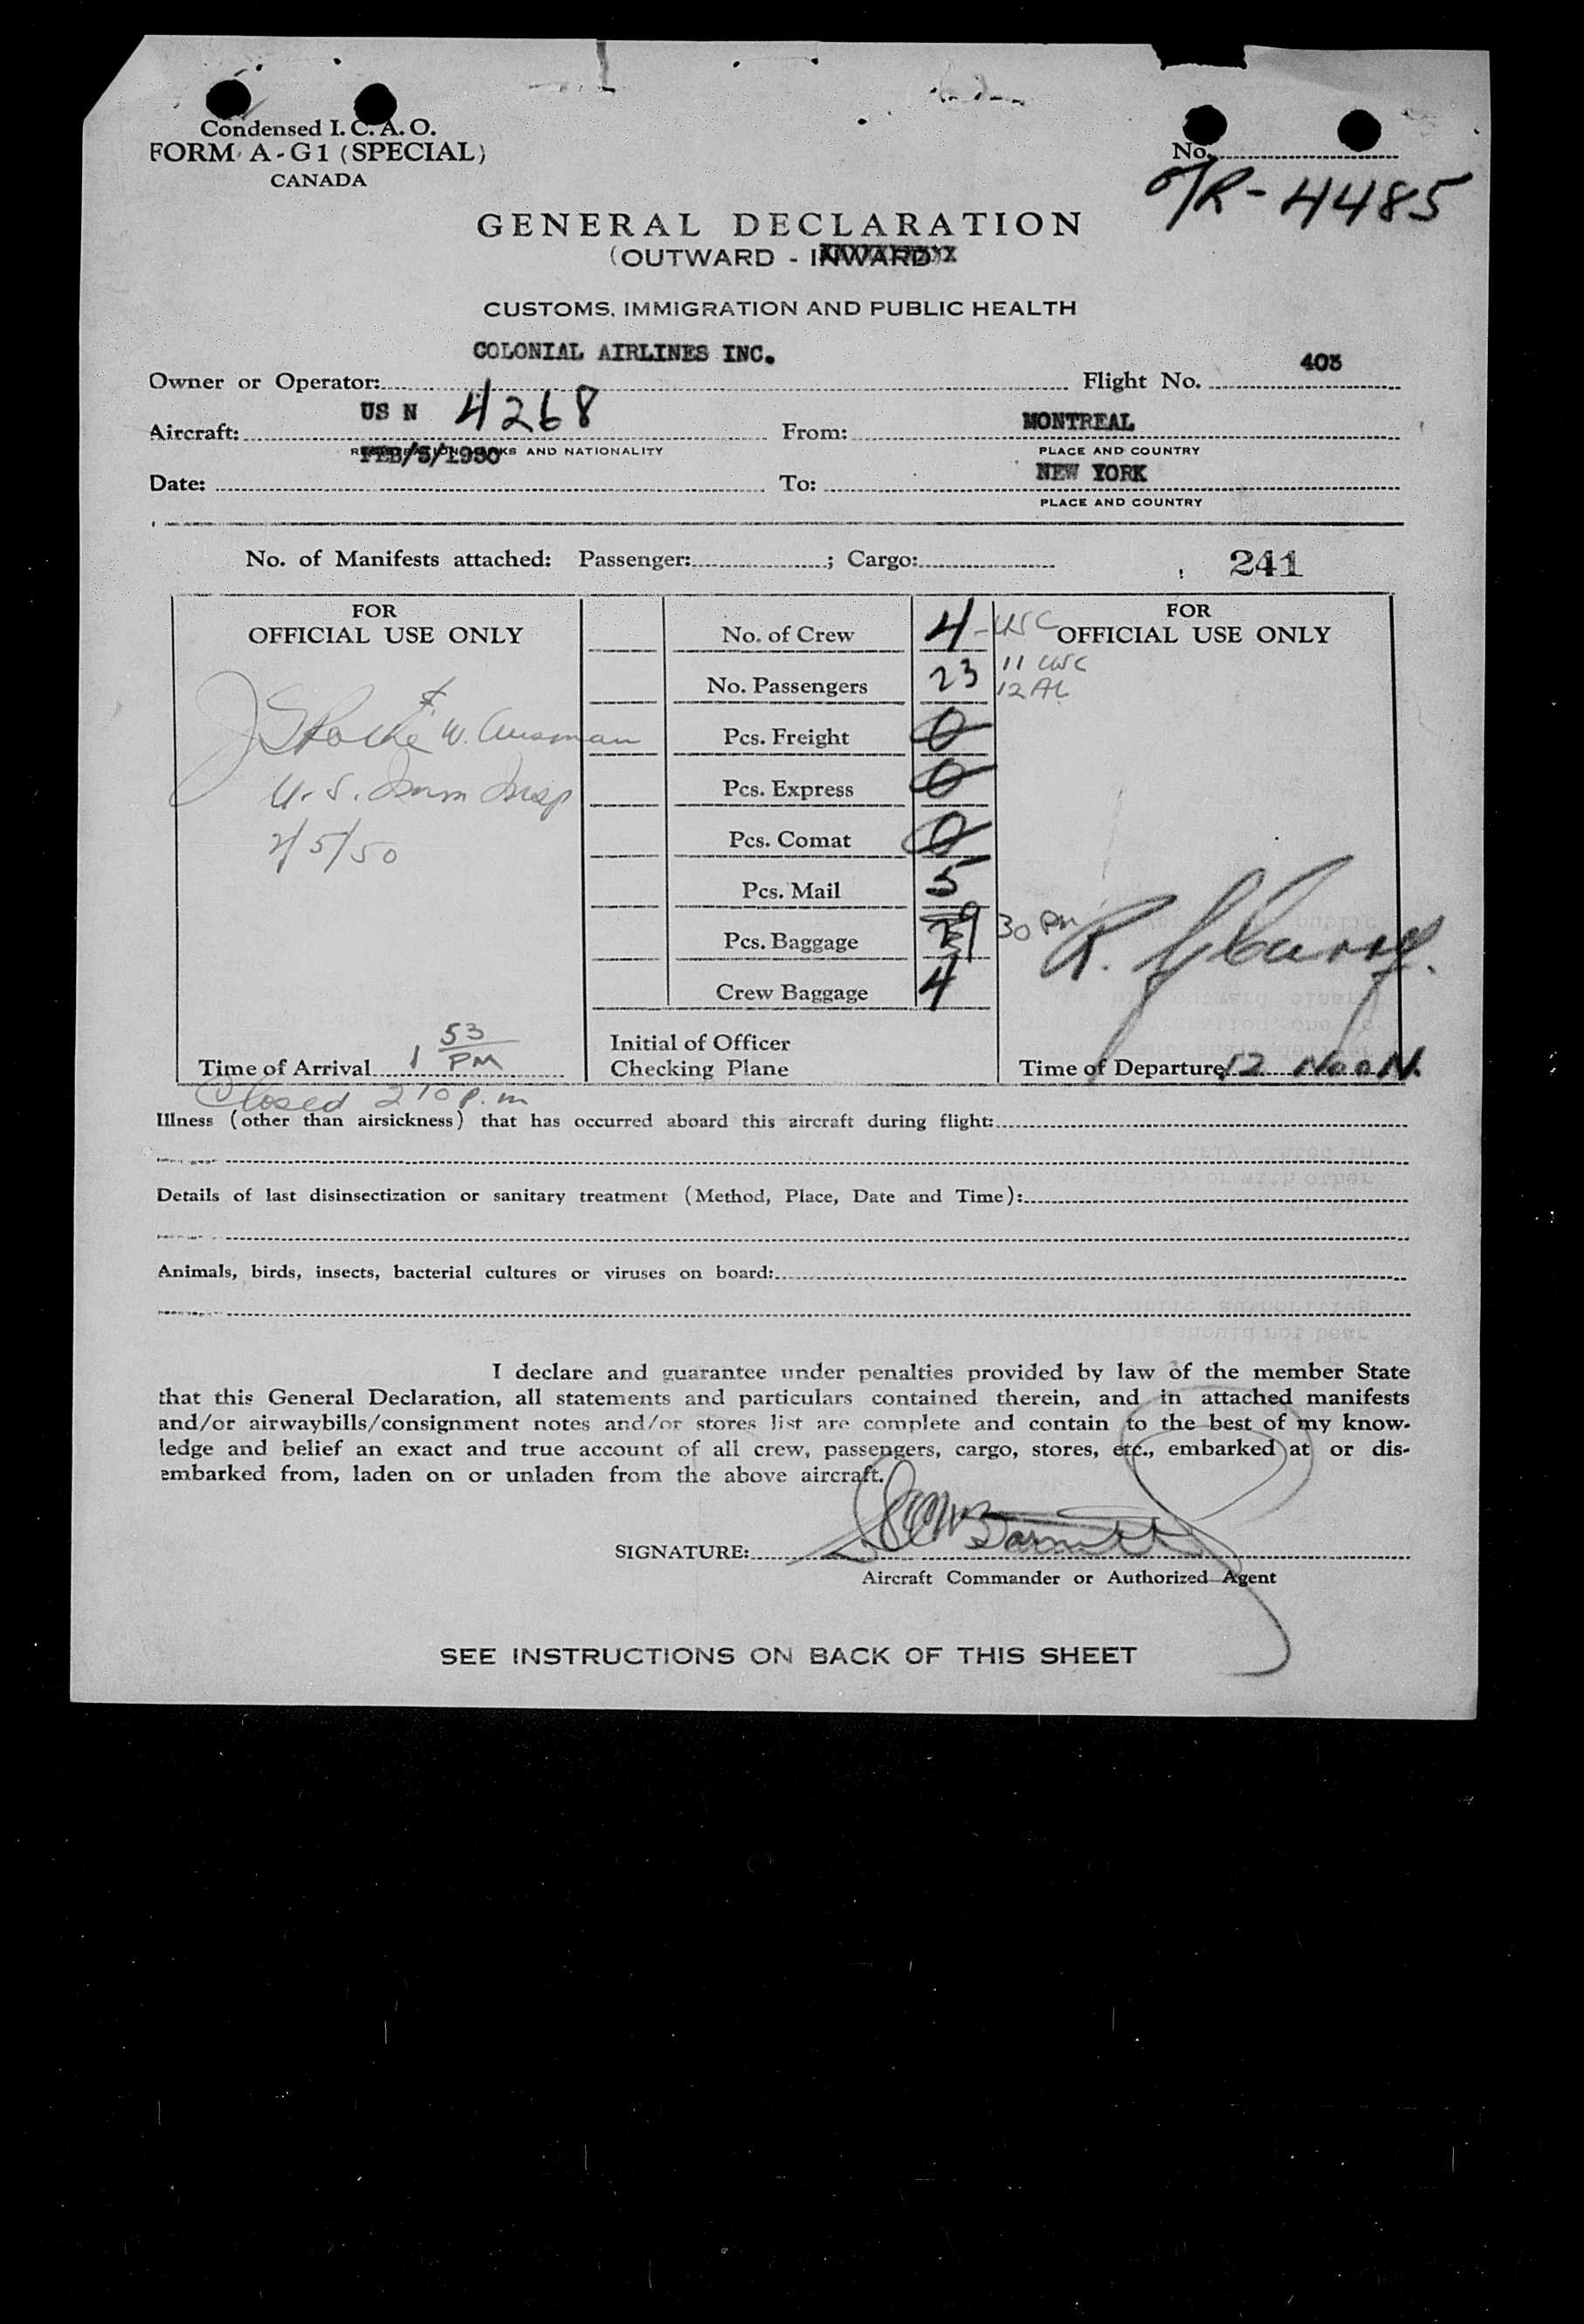 Condensed I. C. A. O.
FORM A-G1 (SPECIAL)
CANADA
No.
O/R-4485
GENERAL DECLARATION
(OUTWARD - INWARD)
CUSTOMS, IMMIGRATION AND PUBLIC HEALTH
COLONIAL AIRLINES INC.
403
Owner or Operator: Flight No.
US N 4268 MONTREAL
Aircraft: From:
REGISTRATION MARKS AND NATIONALITY PLACE AND COUNTRY
FEB/5/1950 NEW YORK
Date: To:
PLACE AND COUNTRY
No. of Manifests attached: Passenger: ; Cargo: 241
FOR
OFFICIAL USE ONLY
& W. Ausman
U.S. Imm Insp
2/5/50
No. of Crew 4 - USC
No. Passengers 23 11 USC
12 AL
Pcs. Freight 0
Pcs. Express 0
Pcs. Comat 0
Pcs. Mail 5
Pcs. Baggage 29 30 Pm
Crew Baggage 4
FOR
OFFICIAL USE ONLY
R.
Time of Arrival 1 53 PM
Initial of Officer
Checking Plane
Time of Departure 12 NOON.
Closed 2 10 p.m
Illness (other than airsickness) that has occurred aboard this aircraft during flight:
Details of last disinsectization or sanitary treatment (Method, Place, Date and Time):
Animals, birds, insects, bacterial cultures or viruses on board:
I declare and guarantee under penalties provided by law of the member State
that this General Declaration, all statements and particulars contained therein, and in attached manifests
and/or airwaybills/consignment notes and/or stores list are complete and contain to the best of my know-
ledge and belief an exact and true account of all crew, passengers, cargo, stores, etc., embarked at or dis-
embarked from, laden on or unladen from the above aircraft.
SIGNATURE:
Aircraft Commander or Authorized Agent
SEE INSTRUCTIONS ON BACK OF THIS SHEET